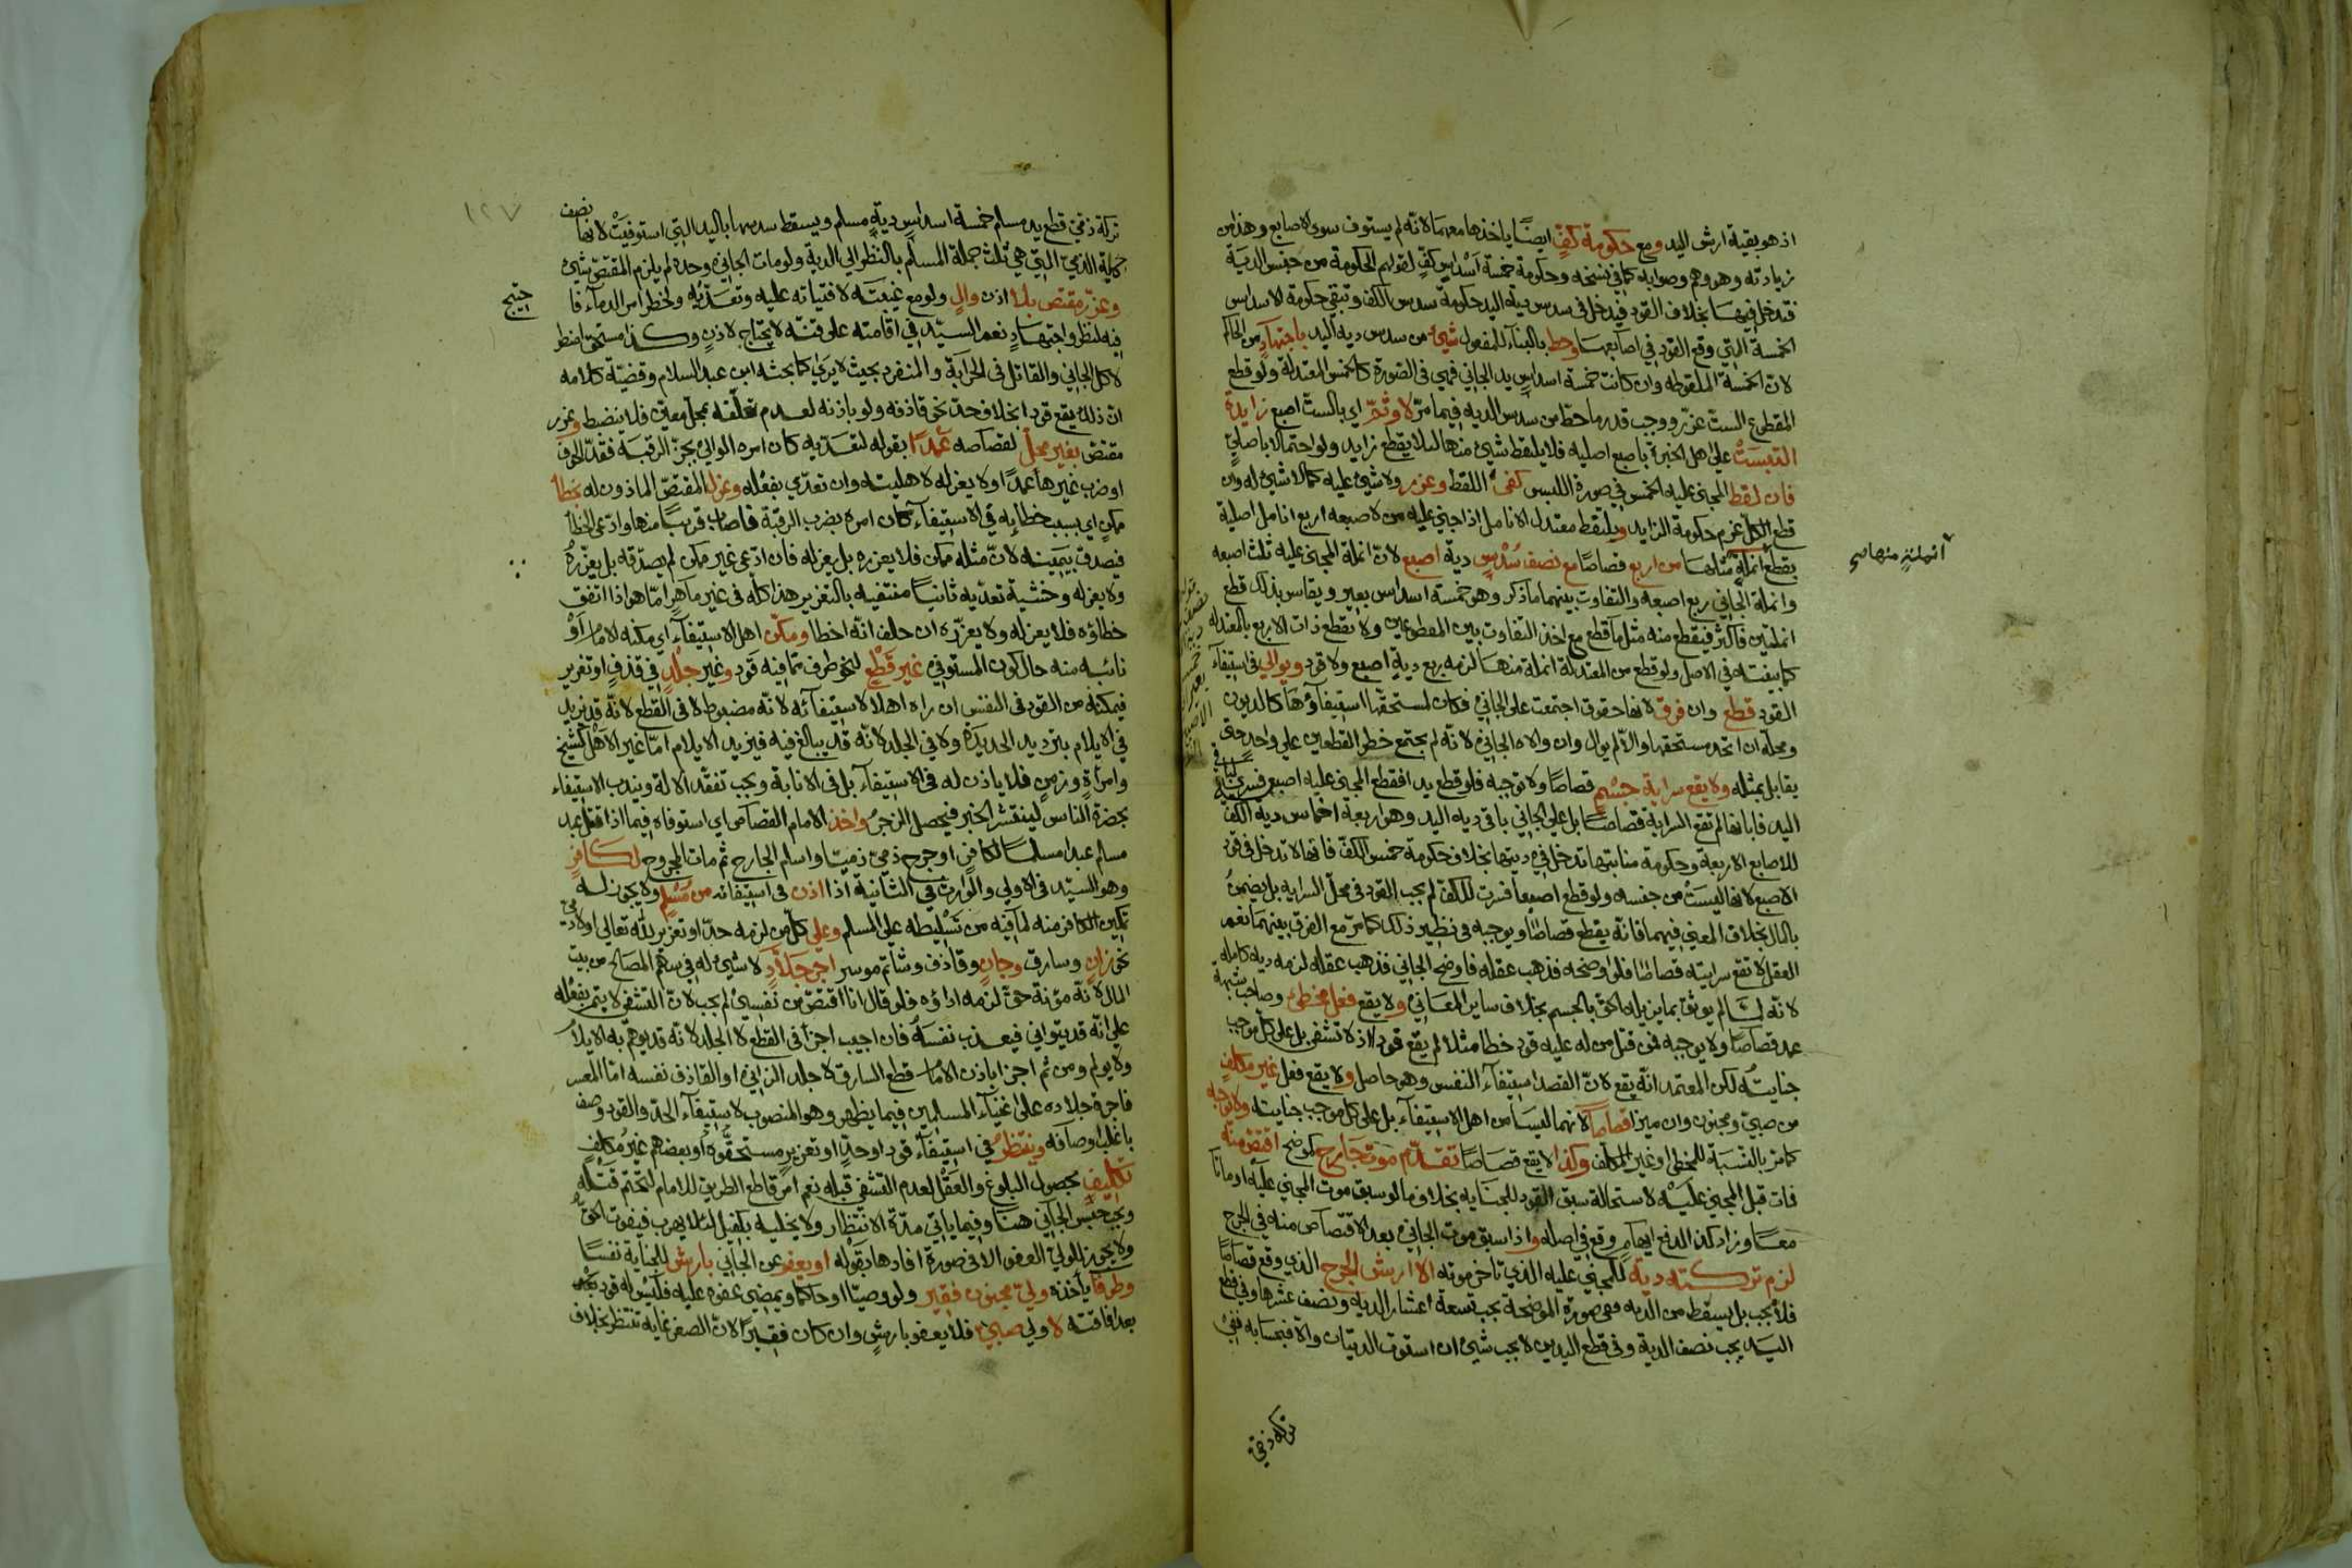 اذ هو بقية ارش اليد ومع حكومة كفٍّ ايضًا ياخذها معهما لانه لم يستوف سوى الاصابع وهذا من
زيادته وهو وهم وصوابه كما في نسخه وحكومة خمسة اسداس كفٍ لقولهم الحكومة من جنس الدية
فتدخل فيها بخلاف القود فيدخل في سدس دية اليد حكومة سدس الكف وتبقى حكومة الاسداس
الخمسة التي وقع القود في اصابعها وحط بالبناء للمفعول شيئ من سدس دية اليد باجتهاد من الحاكم
لان الخمسة الملقوطه وان كانت خمسة اسداس يد الجاني فهي في الصورة كالخمس المعتدلة ولو قطع
المقطوع الست عزر ووجب قدر ما حط من سدس الديه فيما مرّ لا وثمّ اي بالست اصبع زايدة
التبست على اهل الخبرة باصبع اصليه فلا يلقط شيئ منها لئلا يقطع زايد ولو احتمالا باصلي
فان لقط المجني عليه الخمس في صورة اللبس كفى اللقط وعزر ولا شيئ عليه كما لا شيئ له وان
قطع الكل غرم حكومة الزايد ويلقط معتدل الانامل اذا جنى عليه من لاصبعه اربع انامل اصلية
بقطع انملة مثلها من اربع قصاصًا مع نصف سُدس دية اصبع لان انملة المجني عليه ثلث اصبعه
وانملة الجاني ربع اصبعه والتفاوت بينهما ما ذكر وهو خمسة اسداس بعير ويقاس بذلك قطع
انملتين فاكثر فيقطع منه مثل ما قطع مع اخذ التفاوت بين المقطوعين ولا تقطع ذات الاربع بالمعتدله
كما بينته في الاصل ولو قطع من المعتدلة انملة منها لزمه ربع دية اصبع ولا قود ويوالي في استيفاء
القود قطع وان فرق لانها حقوق اجتمعت على الجاني فكان لمستحقها استيفاؤها كالديون
ومحله ان اتحد مستحقها والا لم يوال وان والاه الجاني لانه لم يجتمع خطر القطعين على واحد حتى
يقابل بمثله ولا يقع سراية جسم قصاصًا ولا توجبه فلو قطع يد افقطع المجني عليه اصبع فسرى
اليد فابانها لم تقع السراية قصاصًا بل على الجاني باقي ديه اليد وهو اربعة اخماس دية الكف
للاصابع الاربعة وحكومة منابتها تدخل في ديتها بخلاف حكومة خمس الكف فانها لا تدخل في قود
الاصبع لانها ليست من جنسه ولو قطع اصبعا فسرت للكف لم يجب القود في محل السراية بل يضمنُ
بالمال بخلاف المعني فيهما فانه يقع قصاصًا ويوجبه في نظير ذلك كما مرّ مع الفرق بينهما نعم
العقل لا تقع سرايته قصاصًا فلو اوضحه فذهب عقله فاوضح الجاني فذهب عقله لزمه ديه كامله
لانه لما لم يوثق بما يزيله الحق بالجسم بخلاف ساير المعاني ولا يقع فعل مخطئ وصاحب شبهة
عمد قصاصًا ولا يوجبه فمن قتل من له عليه قود خطا مثلا لم يقع قودا اذ لا تشفي بل على كل موجب
جنايتُه لكن المعتمد انه يقع لان القصد استيفاء النفس وهو حاصل ولا يقع فعل غير مكلف
من صبي ومجنون وان ميزا قصاصًا لانهما ليسا من اهل الاستيفاء بل على كل موجب جنايته ولا توجبه
كما مر بالنسبة للمخطئ وغير المكلف وكذا لا يقع قصاصًا تقدّم موت جارح كموضح اقتص منه
فات قبل المجني عليه لاستحالة سبق القود للجنايه بخلاف ما لو سبق موت المجني عليه او ماتا
معًا وزاد كذا لدفع ايهام وقع في اصله واذا سبق موت الجاني بعد الاقتصاص منه في الجرح
لزم تركته دية للمجني عليه الذي تاخر موته الا ارش الجرح الذي وقع قصاصًا
فلا يجب بل يسقط من الديه ففي صورة الموضحة يجب تسعة اعشار الدية ونصف عشرها وفي قطع
اليد يجب نصف الدية وفي قطع اليدين لا يجب شيئ ان استوت الديتان والا فبحسابه ففي
انملتين منها صح
تركة ذمي
١٢٧
تركة ذمي قطع يد مسلم خمسة اسداس دية مسلم ويسقط سدسها باليد التي استوفيت لانها نصف
جملة الذمي التي هي ثلث جملة المسلم بالنظر الى الدية ولو مات الجاني وحده لم يلزم المقتص شيئ
وعزر مقتص بلا اذن والٍ ولو مع غيبته لافتياته عليه وتعدّيه ولخطر امر الدماء فا
حتيج
فيه لنظر واجتهاد نعم السيّد في اقامته على قنه لا يحتاج لاذن وكذا مستحق اضطر
لاكل الجاني والقاتل في الحرابة والمنفرد بحيث لا يرى كما بحثه ابن عبد السلام وقضيّة كلامه
ان ذلك يقع قودا بخلاف حد نحو قاذفه ولو باذنه لعدم تعلقه بمحل معين فلا ينضبط وعزر
مقتص بغير محل لقصاصه عمدًا بقوله لتعديه كان امره الوالي بحز الرقبة فقد الجوف
او ضرب غيرها عمدًا ولا يعزله لاهليته وان تعدّى بفعله وعزل المقتص الماذون له بخطأ
ممكن اي بسبب خطا به في الاستيفاء كان امره بضرب الرقبة فاصاب قريبًا منها وادعى الخطأ
فيصدق بيمينه لان مثله ممكن فلا يعزره بل يعزله فان ادعى غير ممكن لم يصدّقه بل يعزّرهُ
ولا يعزله وخشية تعدّيه ثانيًا منتفيه بالتعزير هذا كله في غير ماهر اما هو اذا اتفق
خطاؤه فلا يعزله ولا يعزّره ان حلف انه اخطا ومكّن اهل الاستيفاء اي مكنه الامام اَوْ
نائبه منه حال كون المستوفي غير قَطْع لنحو طرف مما فيه قود وغير جلدٍ في قذف او تعزير
فيمكنه من القود في النفس ان راه اهلا لاستيفائه لانه مضبوط لا في القطع لانه قد يزيد
في الايلام بترديد الحديدة ولا في الجلد لانه قد يبالغ فيه فيزيد الايلام اما غير الاهل كشيخ
وامرأة وزمن فلا ياذن له في الاستيفاء بل في الانابة ويجب تفقد الالة ويندب الاستيفاء
بحضرة الناس لينتشر الخبر فيحصل الزجرُ واخذ الامام القصاص اي استوفاه فيما اذا قتل عبد
مسلم عبدا مسلمًا لكافر او جرح ذمي ذميًا واسلم الجارح ثم مات المجروح لكافر
وهو السيّد في الاولى والوارث في الثانية اذا اذن في استيفائه من مسلم ولا يجوز له
تمكين الكافر منه لما فيه من تسليطه على المسلم وعلى كل من لزمه حدّ او تعزير لله تعالى او لادمي
نحو زان وسارق وجان وقاذف وشاتم موسر اجر جلّاد لا شيئ له في سهم المصالح من بيت
المال لانه مؤنة حق لزمه اداؤه فلو قال انا اقتص من نفسي لم يجب لان التشفي لا يتم بفعله
على انه قد يتوانى فيعذب نفسه فان اجيب اجزأ في القطع لا الجلد لانه قد يوهم به الايلام
ولا يولم ومن ثم اجزأ باذن الامام قطع السارق لا جلد الزاني او القاذف نفسه اما المعسر
فاجرة جلاده على اغنياء المسلمين فيما يظهر وهو المنصوب لاستيفاء الحدّ والقود وصف
باغلب اوصافه وينتظرُ في استيفاء قود او حدّ او تعزير مستحقوه او بعضهم غير مكلف
تكليف بحصول البلوغ والعقل لعدم التشفي قبله نعم امر قاطع الطريق للامام لتحتم قتله
ويجب حبس الجاني هنا وفيما ياتي مدّة الانتظار ولا يخليه بكفيل لئلا يهرب فيفوت الحق
ولا يجوز للولي العفو الا في صورة افادها بقوله او يعفو عن الجاني بارش للجناية نفسًا
وطرفًا ياخذه ولي مجنون فقير ولو وصيّا او حاكما ويمضي عفوه عليه فليس له قود بعد
بعد افاقته لا ولي صبي فلا يعفو بارش وان كان فقيرًا لان للصغر غاية تنتظر بخلاف